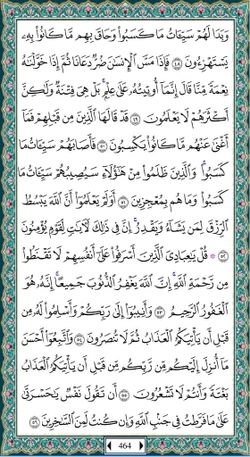 وَبَدَا لَهُمْ سَيِّـَٔاتُ مَا كَسَبُوا۟ وَحَاقَ بِهِم مَّا كَانُوا۟ بِهِۦ
يَسْتَهْزِءُونَ ٤٨ فَإِذَا مَسَّ ٱلْإِنسَـٰنَ ضُرٌّ دَعَانَا ثُمَّ إِذَا خَوَّلْنَـٰهُ
نِعْمَةً مِّنَّا قَالَ إِنَّمَآ أُوتِيتُهُۥ عَلَىٰ عِلْمٍۭ ۚ بَلْ هِىَ فِتْنَةٌ وَلَـٰكِنَّ
أَكْثَرَهُمْ لَا يَعْلَمُونَ ٤٩ قَدْ قَالَهَا ٱلَّذِينَ مِن قَبْلِهِمْ فَمَآ
أَغْنَىٰ عَنْهُم مَّا كَانُوا۟ يَكْسِبُونَ ٥٠ فَأَصَابَهُمْ سَيِّـَٔاتُ مَا
كَسَبُوا۟ ۚ وَٱلَّذِينَ ظَلَمُوا۟ مِنْ هَـٰٓؤُلَآءِ سَيُصِيبُهُمْ سَيِّـَٔاتُ مَا
كَسَبُوا۟ وَمَا هُم بِمُعْجِزِينَ ٥١ أَوَلَمْ يَعْلَمُوٓا۟ أَنَّ ٱللَّهَ يَبْسُطُ
ٱلرِّزْقَ لِمَن يَشَآءُ وَيَقْدِرُ ۚ إِنَّ فِى ذَٰلِكَ لَـَٔايَـٰتٍ لِّقَوْمٍ يُؤْمِنُونَ
٥٢ ۞ قُلْ يَـٰعِبَادِىَ ٱلَّذِينَ أَسْرَفُوا۟ عَلَىٰٓ أَنفُسِهِمْ لَا تَقْنَطُوا۟
مِن رَّحْمَةِ ٱللَّهِ ۚ إِنَّ ٱللَّهَ يَغْفِرُ ٱلذُّنُوبَ جَمِيعًا ۚ إِنَّهُۥ هُوَ
ٱلْغَفُورُ ٱلرَّحِيمُ ٥٣ وَأَنِيبُوٓا۟ إِلَىٰ رَبِّكُمْ وَأَسْلِمُوا۟ لَهُۥ مِن
قَبْلِ أَن يَأْتِيَكُمُ ٱلْعَذَابُ ثُمَّ لَا تُنصَرُونَ ٥٤ وَٱتَّبِعُوٓا۟ أَحْسَنَ
مَآ أُنزِلَ إِلَيْكُم مِّن رَّبِّكُم مِّن قَبْلِ أَن يَأْتِيَكُمُ ٱلْعَذَابُ
بَغْتَةً وَأَنتُمْ لَا تَشْعُرُونَ ٥٥ أَن تَقُولَ نَفْسٌ يَـٰحَسْرَتَىٰ
عَلَىٰ مَا فَرَّطتُ فِى جَنۢبِ ٱللَّهِ وَإِن كُنتُ لَمِنَ ٱلسَّـٰخِرِينَ ٥٦
464